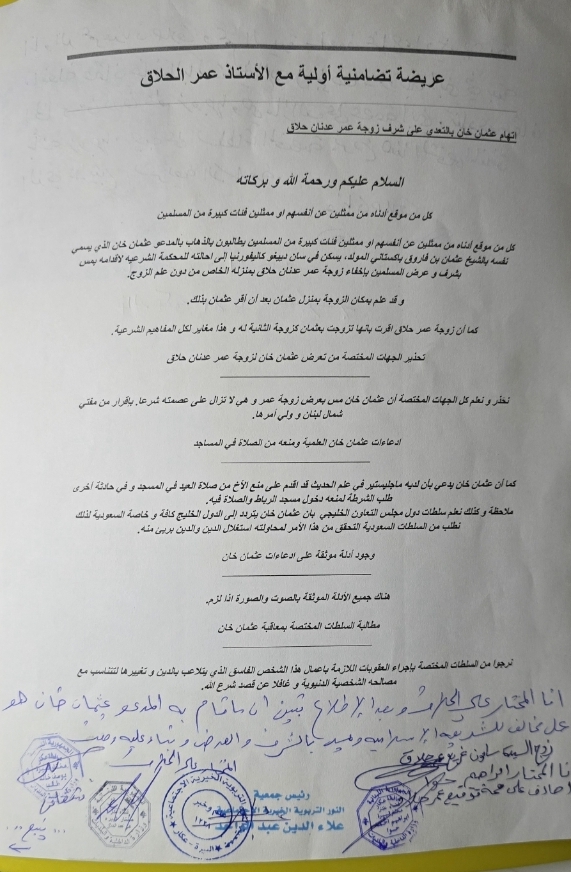 عريضة تضامنية أولية مع الأستاذ عمر الحلاق
اتهام عثمان خان بالتعدي على شرف زوجة عمر عدنان حلاق
السلام عليكم ورحمة الله و بركاته
كل من موقع أدناه من ممثلين عن أنفسهم او ممثلين فئات كبيرة من المسلمين
كل من موقع أدناه من ممثلين عن أنفسهم او ممثلين فئات كبيرة من المسلمين يطالبون بالذهاب بالمدعو عثمان خان الذي يسمي
نفسه بالشيخ عثمان بن فاروق باكستاني المولد، يسكن في سان دييغو كاليفورنيا إلى احالته للمحكمة الشرعيه لاقدامه بمس
بشرف و عرض المسلمين بإخفاء زوجة عمر عدنان حلاق بمنزله الخاص من دون علم الزوج.
و قد علم بمكان الزوجة بمنزل عثمان بعد أن أقر عثمان بذلك.
كما أن زوجة عمر حلاق اقرت بانها تزوجت بعثمان كزوجة الثانية له و هذا مغاير لكل المفاهيم الشرعية.
تحذير الجهات المختصة من تعرض عثمان خان لزوجة عمر عدنان حلاق
نحذر و نعلم كل الجهات المختصة أن عثمان خان مس بعرض زوجة عمر و هي لا تزال على عصمته شرعا. بإقرار من مفتي
شمال لبنان و ولي أمرها.
ادعاءات عثمان خان العلمية ومنعه من الصلاة في المساجد
كما أن عثمان خان يدعي بأن لديه ماجليستير في علم الحديث قد اقدم على منع الأخ من صلاة العيد في المسجد و في حادثة أخرى
طلب الشرطة لمنعه دخول مسجد الرباط والصلاة فيه.
ملاحظة و كذلك نعلم سلطات دول مجلس التعاون الخليجي بان عثمان خان يتردد إلى الدول الخليج كافة و خاصة السعودية لذلك
نطلب من السلطات السعودية التحقق من هذا الأمر لمحاولته استغلال الدين والدين بريئ منه.
وجود أدلة موثقة على ادعاءات عثمان خان
هناك جميع الأدلة الموثقة بالصوت والصورة اذا لزم.
مطالبة السلطات المختصة بمعاقبة عثمان خان
نرجوا من السلطات المختصة بإجراء العقوبات اللازمة بإعمال هذا الشخص الفاسق الذي يتلاعب بالدين و تغييرها لتتناسب مع
مصالحه الشخصية الدنيوية و غافلا عن قصد شرع الله.
انا المختار علي الحلاق وبعد الإطلاع تبين ان ما قام به المدعو عثمان خان هو
عمل مخالف للشريعة الإسلامية ويمس بالشرف والعرض وبناء عليه
المختار علي الحلاق
رئيس جمعية
النور التربوية الخيرية الاجتماعية
علاء الدين عبد الواحد